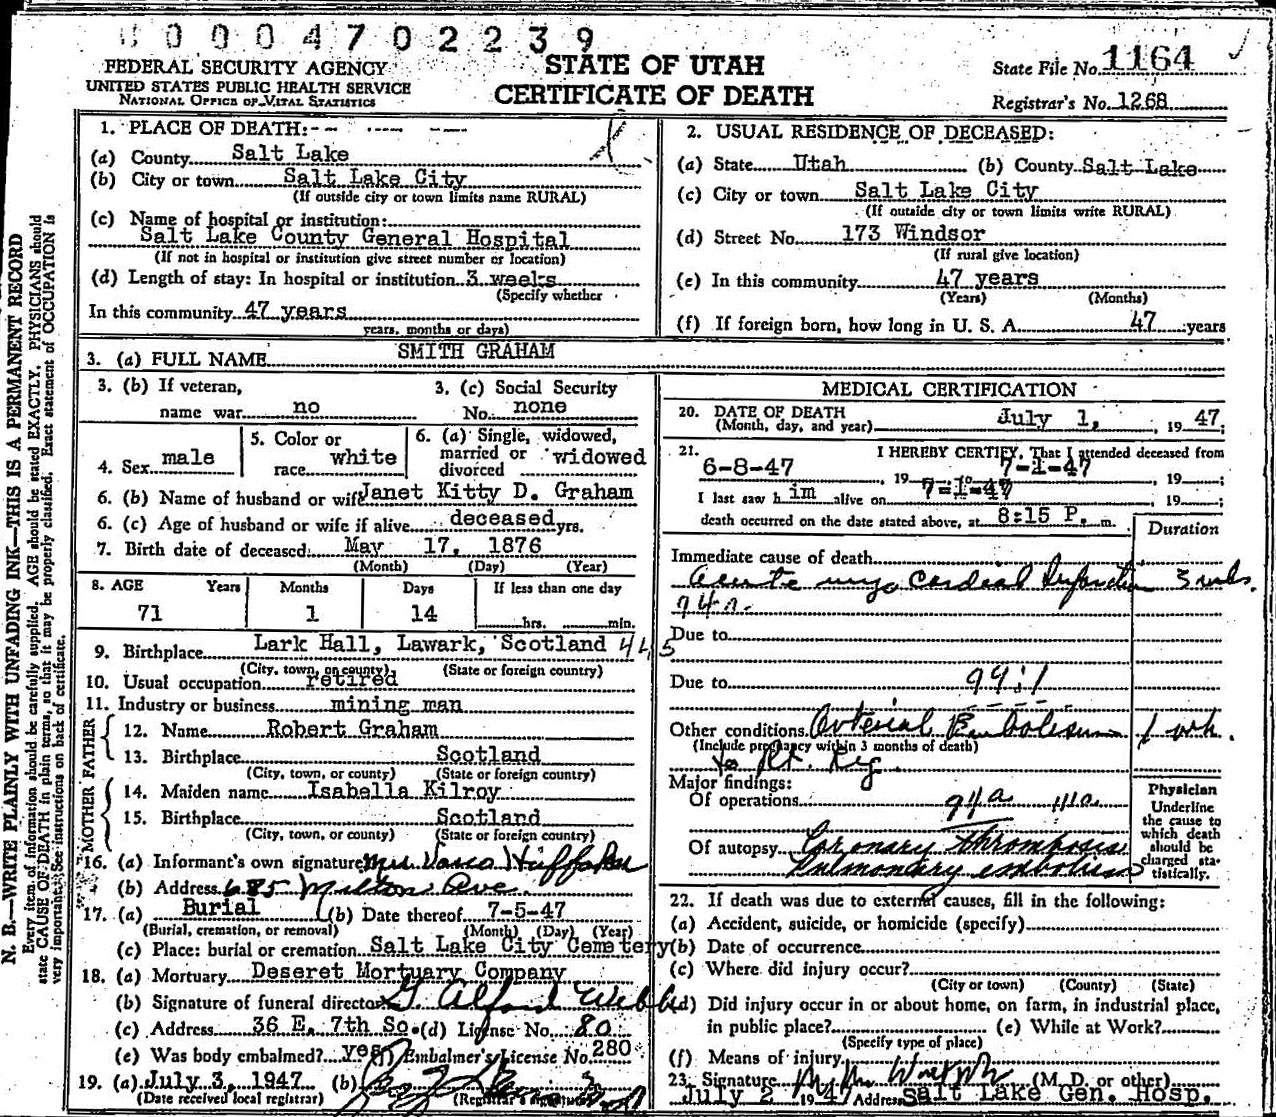 0004702239
FEDERAL SECURITY AGENCY
UNITED STATES PUBLIC HEALTH SERVICE
NATIONAL OFFICE OF VITAL STATISTICS
STATE OF UTAH
CERTIFICATE OF DEATH
State File No. 1164
Registrar's No. 1268
N. B.—WRITE PLAINLY WITH UNFADING INK—THIS IS A PERMANENT RECORD
Every item of information should be carefully supplied. AGE should be stated EXACTLY. PHYSICIANS should
state CAUSE OF DEATH in plain terms, so that it may be properly classified. Exact statement of OCCUPATION is
very important. See instructions on back of certificate.
1. PLACE OF DEATH:
(a) County Salt Lake
(b) City or town Salt Lake City
(If outside city or town limits name RURAL)
(c) Name of hospital or institution:
Salt Lake County General Hospital
(If not in hospital or institution give street number or location)
(d) Length of stay: In hospital or institution 3 weeks
(Specify whether
In this community 47 years
years, months or days)
2. USUAL RESIDENCE OF DECEASED:
(a) State Utah (b) County Salt Lake
(c) City or town Salt Lake City
(If outside city or town limits write RURAL)
(d) Street No. 173 Windsor
(If rural give location)
(e) In this community 47 years
(Years) (Months)
(f) If foreign born, how long in U. S. A. 47 years
3. (a) FULL NAME SMITH GRAHAM
3. (b) If veteran,
name war no
3. (c) Social Security
No. none
4. Sex male
5. Color or
race white
6. (a) Single, widowed,
married or
divorced widowed
6. (b) Name of husband or wife Janet Kitty D. Graham
6. (c) Age of husband or wife if alive deceased yrs.
7. Birth date of deceased May 17, 1876
(Month) (Day) (Year)
8. AGE Years Months Days If less than one day
71 1 14 hrs. min.
9. Birthplace Lark Hall, Lawark, Scotland 445
(City, town, or county) (State or foreign country)
10. Usual occupation retired
11. Industry or business mining man
FATHER
12. Name Robert Graham
13. Birthplace Scotland
(City, town, or county) (State or foreign country)
MOTHER
14. Maiden name Isabella Kilroy
15. Birthplace Scotland
(City, town, or county) (State or foreign country)
16. (a) Informant's own signature Mrs. Vasco Huffaker
(b) Address 685 Milton Ave
17. (a) Burial (b) Date thereof 7-5-47
(Burial, cremation, or removal) (Month) (Day) (Year)
(c) Place: burial or cremation Salt Lake City Cemetery
18. (a) Mortuary Deseret Mortuary Company
(b) Signature of funeral director Alford Webb
(c) Address 36 E. 7th So. (d) License No. 80
(e) Was body embalmed? yes (f) Embalmer's License No. 280
19. (a) July 3, 1947 (b)
(Date received local registrar) (Registrar's signature)
MEDICAL CERTIFICATION
20. DATE OF DEATH
(Month, day, and year) July 1, 19 47;
21. I HEREBY CERTIFY, That I attended deceased from
6-8-47, 19 7-1-47, 19 ;
I last saw h im alive on 7-1-47 19 ;
death occurred on the date stated above, at 8:15 P. m.
Duration
Immediate cause of death
Acute myo cardial Infarction 3 wks.
94a.
Due to
Due to 94:1
Other conditions Arterial Embolism 1 wk.
(Include pregnancy within 3 months of death)
to Rt. leg
Major findings:
Of operations 94a 111a
Of autopsy Coronary thrombosis
Pulmonary embolism
Physician
Underline
the cause to
which death
should be
charged sta-
tistically.
22. If death was due to external causes, fill in the following:
(a) Accident, suicide, or homicide (specify)
(b) Date of occurrence
(c) Where did injury occur?
(City or town) (County) (State)
(d) Did injury occur in or about home, on farm, in industrial place,
in public place? (e) While at Work?
(Specify type of place)
(f) Means of injury
23. Signature (M. D. or other)
July 2 1947 Address Salt Lake Gen. Hosp.